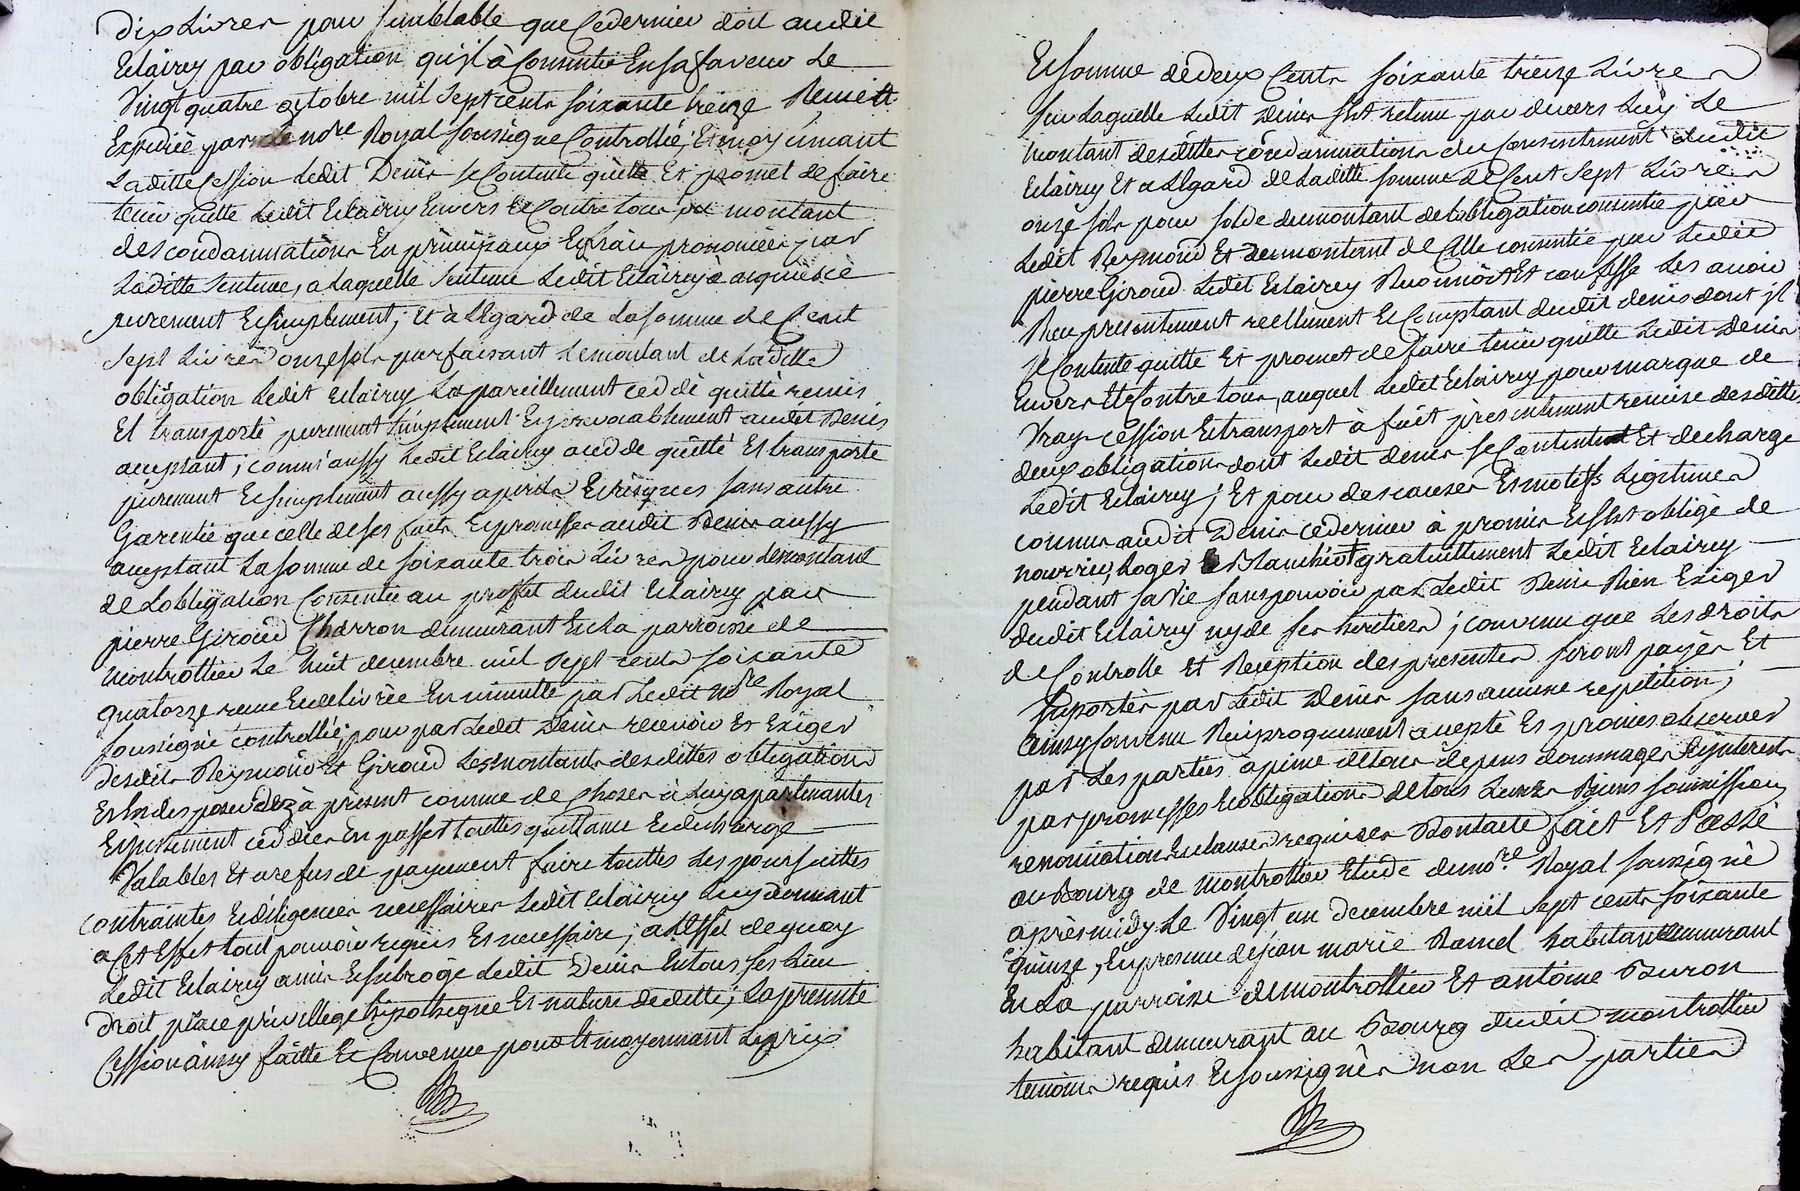 dix Livres pour semblable que Cedernier doit audit
Eclairey par obligation qu'jl à Consentie Ensafaveur Le
Vingtquatre octobre mil Septcents Soixante treize Reçue et
Expediée par le no.re Royal Soussigné Controllée; Et moyennant
Laditte Cession Ledit Denis se Contente quitte Et promet de faire
tenir quitte Ledit Eclairey Envers Et Contre tous du montant
des condamnations En principaux Et frais prononcées par
Laditte Sentence, a Laquelle Sentence Ledit Eclairey à acquiescé
purement Et simplement; Et à Légard de La somme de Cent
Sept Livres onze sols parfaisant Le montant de Laditte
obligation Ledit Eclairey La pareillement ceddé quitté remis
Et transporté purement simplement Et jrrevocablement audit Denis
aceptant; comm'aussy Ledit Eclairey a cedde quitté Et transporté
purement Et simplement aussy a perils Et risques sans autre
Garentie que celle de ses faits Et promesses audit Denis aussy
aceptant La somme de soixante trois Livres pour Le montant
de Lobligation Consentie au proffit dudit Eclairey par
pierre Giroud Charron demeurant En La parroisse de
montrottier Le huit decembre mil sept cents soixante
quatorze reçue Et delivrée En minutte par Ledit no.re Royal
soussigné controllée; pour par Ledit Denis recevoir Et Exiger
desdits Reymond Et Giroud Les montants desdittes obligations
En disposer dez à present comme de choses à Luy apartenantes
Et purement ceddées En passer touttes quittance Et decharge
Valables Et a refus de payement faire touttes Les poursuittes
contraintes Et diligences necessaires Ledit Eclairey Luy donnant
a Cet Effet tout pouvoir requis Et necessaire; a L'Effet de quoy
Ledit Eclairey a mis Et subrogé Ledit Denis En tous ses Lieu
droit place privillege hypotheque Et nature deditte; La presente
Cession ainsy faitte Et Convenue pour Et moyennant Le prix
Et somme de deux Cents soixante treize Livres
sur Laquelle Ledit Denis s'est retenu par devers Luy Le
montant desdittes condamnations du consentement dudit
Eclairey Et a L'Egard de Laditte somme de Cent sept Livres
onze sols pour solde du montant de Lobligation consentie par
Ledit Reymond Et du montant de Celle consentie par Ledit
pierre Giroud Ledit Eclairey Reconnoit Et confesse Les avoir
Reçu presentement reellement Et Comptant dudit denis dont jl
se Contente quitte Et promet de faire tenir quitte Ledit Denis
Envers Et Contre tous, auquel Ledit Eclairey pour marque de
Vraye cession Et transport à fait presentement remise desdittes
deux obligations dont Ledit denis se Contente Et decharge
Ledit Eclairey; Et pour des causes Et motifs Legitimes
connus audit Denis ce dernier à promis Et s'est obligé de
nourrir, Loger Et Blanchir gratuittement Ledit Eclairey
pendant sa Vie sans pouvoir par Ledit Denis Rien Exiger
dudit Eclairey ny de ses heritiers; convenu que Les droits
de Controlle Et Reception des presentes seront payés Et
suportés par Ledit Denis sans aucune repetition;
ainsy convenu Reciproquement accepté Et promis observer
par Les parties a peine de tous depens dommages Et jnterests
par promesses Et obligations de tous Leurs Biens soumissions
renonciations Et clauses requises Dontacte fait Et Passé
au Bourg de montrottier Etude du no.re Royal soussigné
après midy Le Vingt un decembre mil sept cents soixante
quinze, En presence de jean marie Ramel habitant demeurant
En La parroisse de montrottier Et antoine Buron
habitant demeurant au Bourg dudit montrottier
temoins requis Et soussignés non Les parties